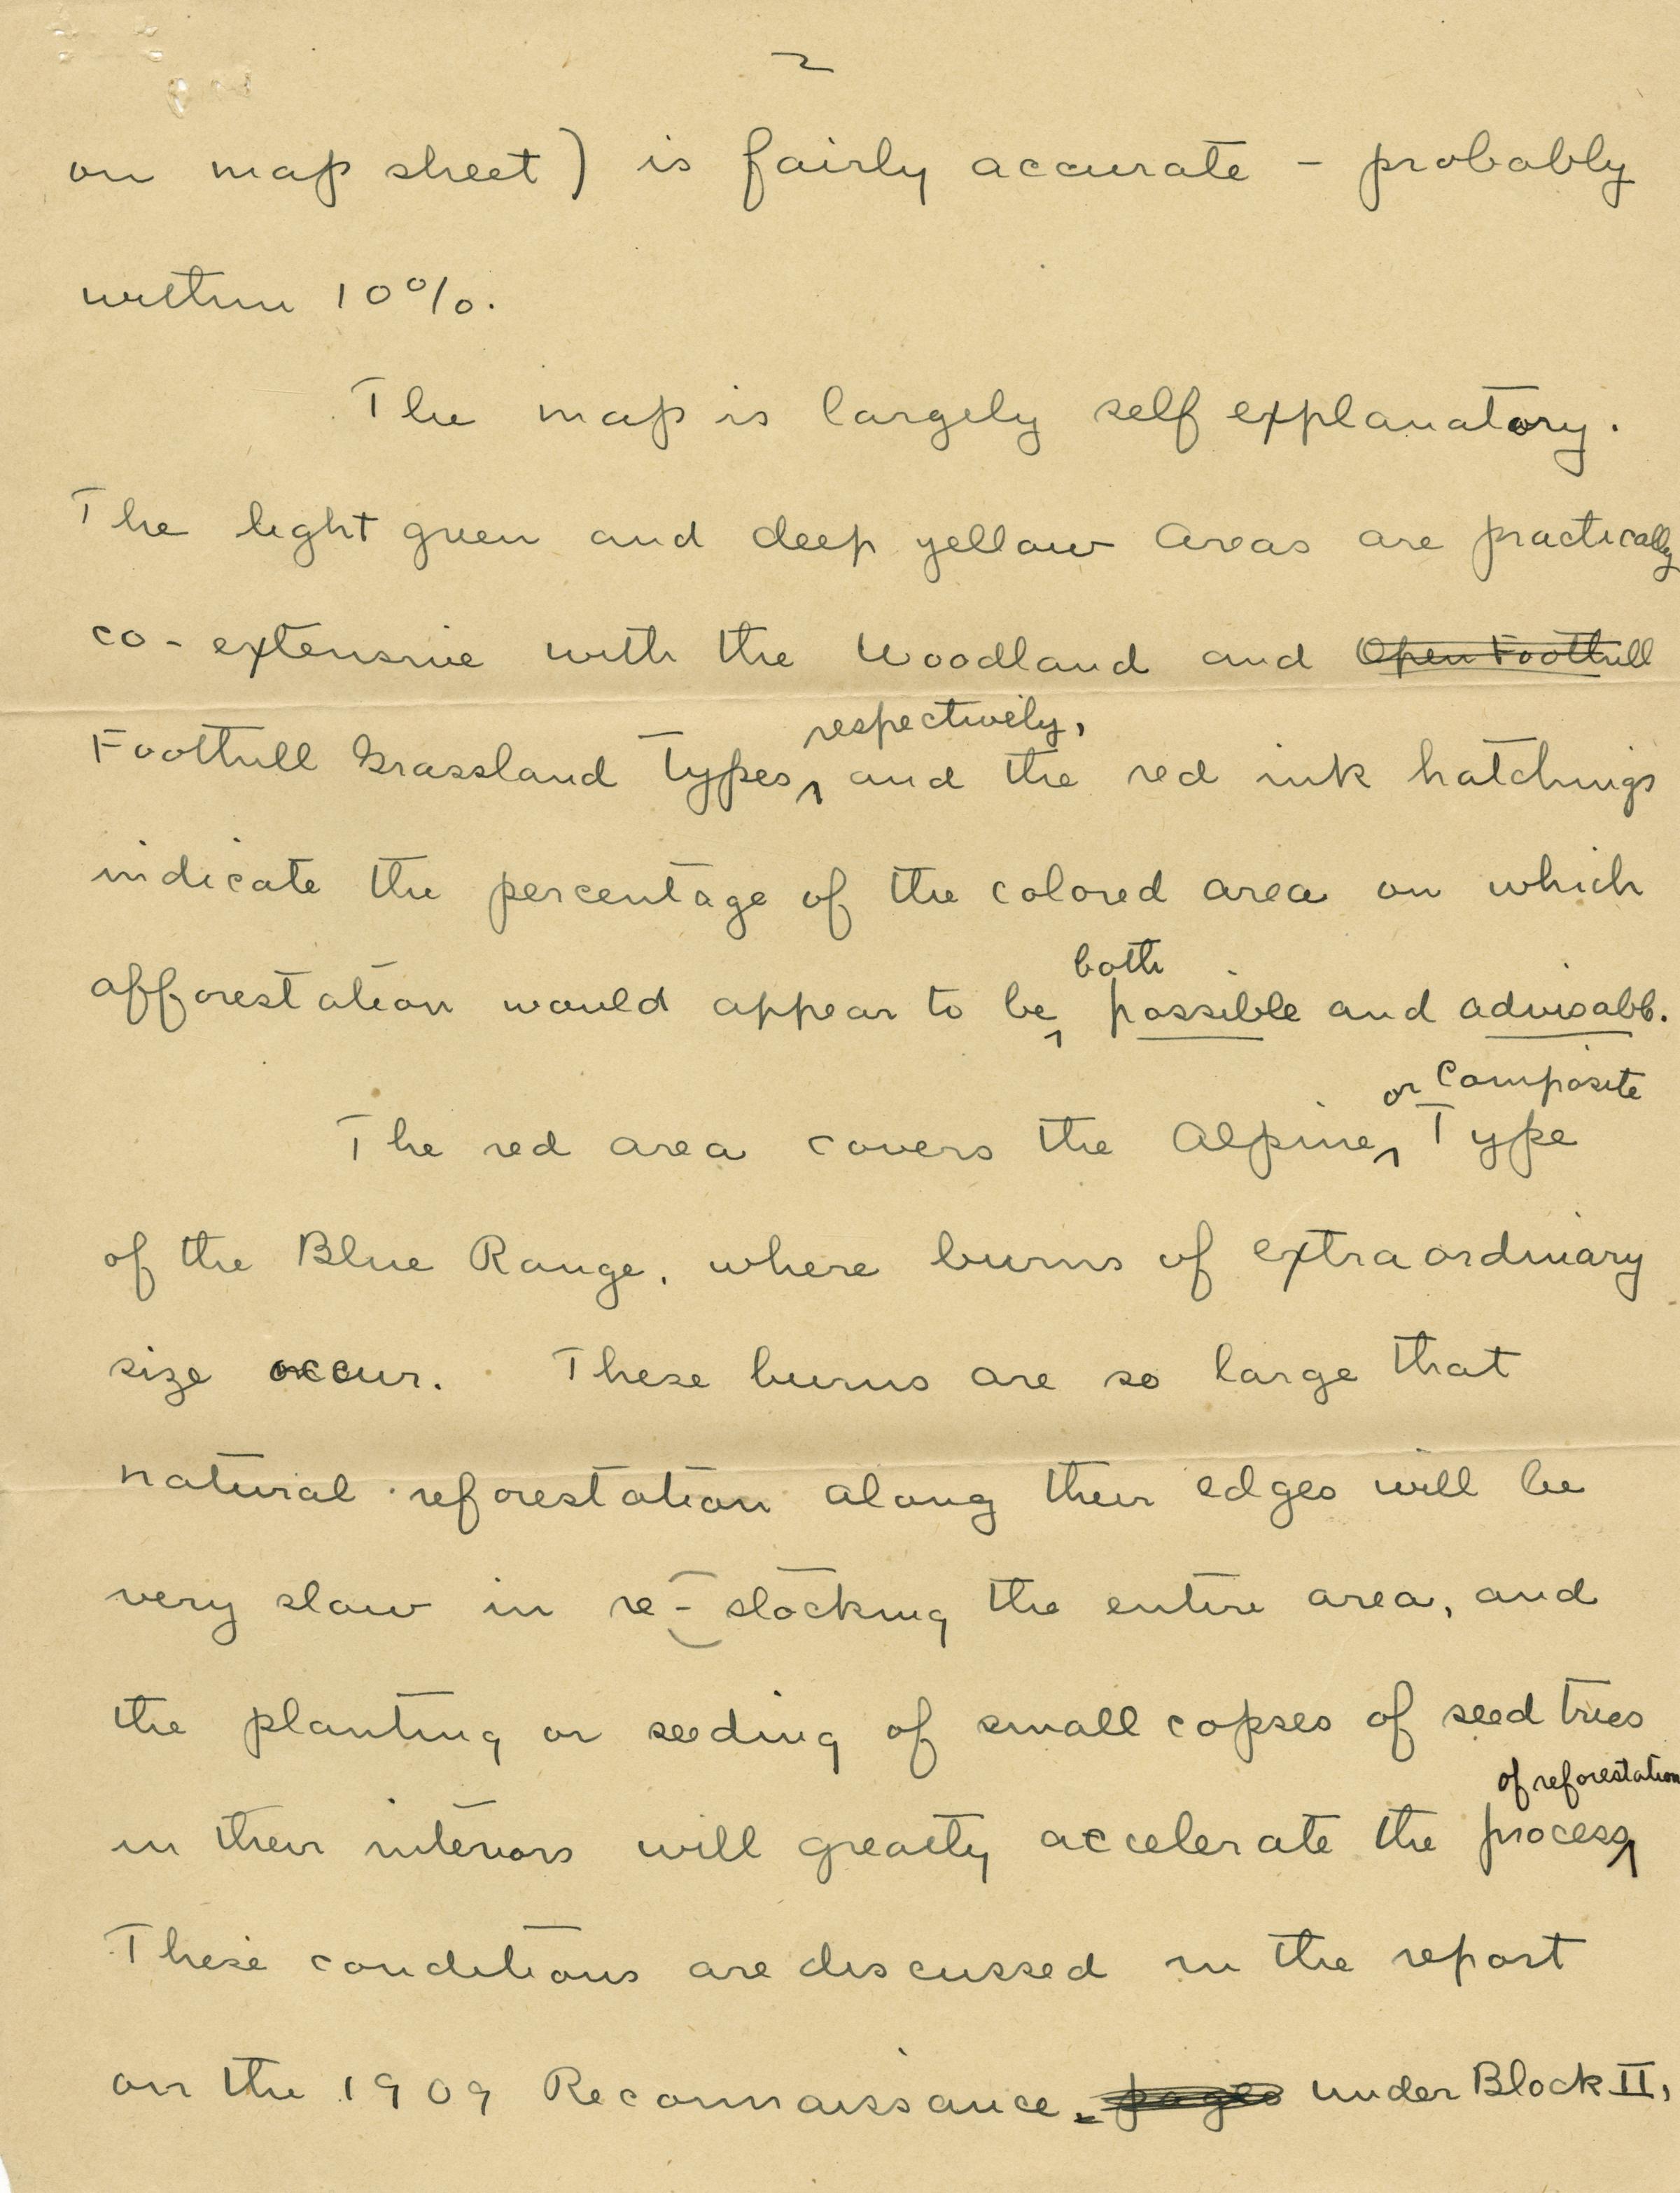 2
on map sheet) is fairly accurate - probably
within 10%.
The map is largely self explanatory.
The light green and deep yellow areas are practically
co-extensive with the Woodland and Open Foothill
respectively,
Foothill Grassland Types, and the red ink hatchings
indicate the percentage of the colored area on which
both
afforestation would appear to be possible and advisable.
or Composite
The red area covers the Alpine Type
of the Blue Range, where burns of extraordinary
size occur. These burns are so large that
natural reforestation along their edges will be
very slow in re-stocking the entire area, and
the planting or seeding of small copses of seed trees
of reforestation
in their interiors will greatly accelerate the process
These conditions are discussed in the report
on the 1909 Reconnaissance, pages under Block II,